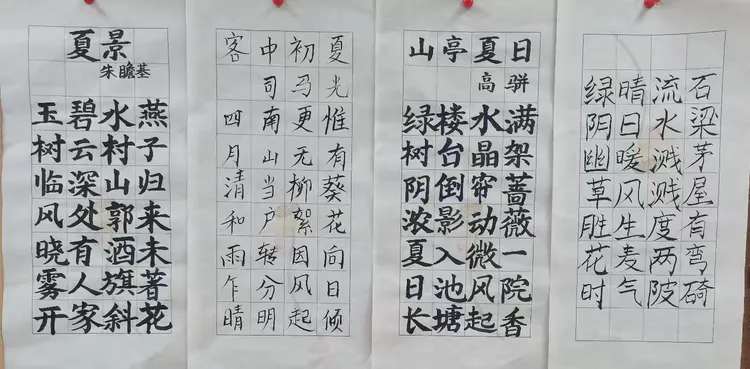 夏景
朱瞻基
玉树临风晓雾开
碧云深处有人家
水村山郭酒旗斜
燕子归来未著花
客中初夏
司马光
四月清和雨乍晴
南山当户转分明
更无柳絮因风起
惟有葵花向日倾
山亭夏日
高骈
绿树阴浓夏日长
楼台倒影入池塘
水晶帘动微风起
满架蔷薇一院香
绿阴幽草胜花时
晴日暖风生麦气
流水溅溅度两陂
石梁茅屋有弯碕